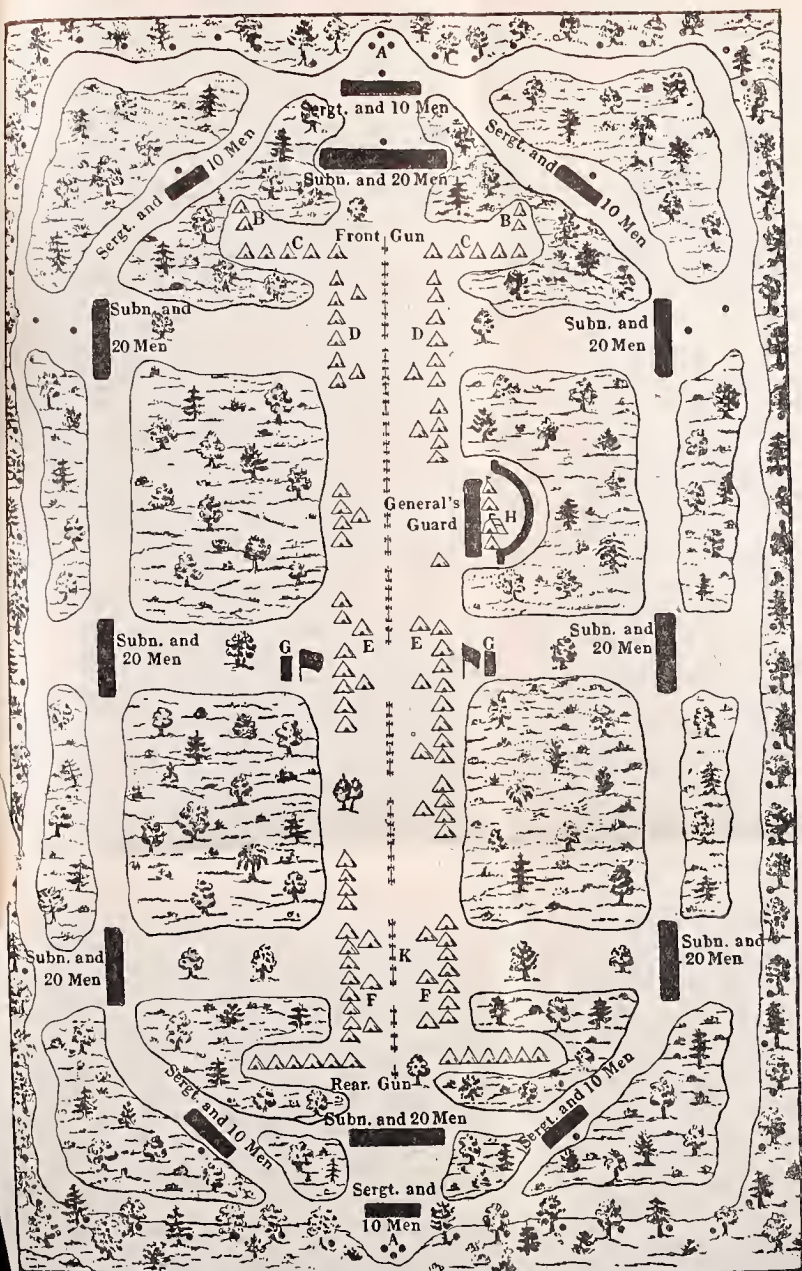 A
Sergt. and 10 Men
Subn. and 20 Men
Sergt. and 10 Men
Sergt. and 10 Men
B
B
C
Front Gun
C
Subn. and
20 Men
D
D
Subn. and
20 Men
General's
Guard
H
Subn. and
20 Men
G
E
E
G
Subn. and
20 Men
Subn. and
20 Men
K
F
F
Subn. and
20 Men
Rear. Gun
Sergt. and 10 Men
Subn. and 20 Men
Sergt. and 10 Men
Sergt. and
10 Men
A